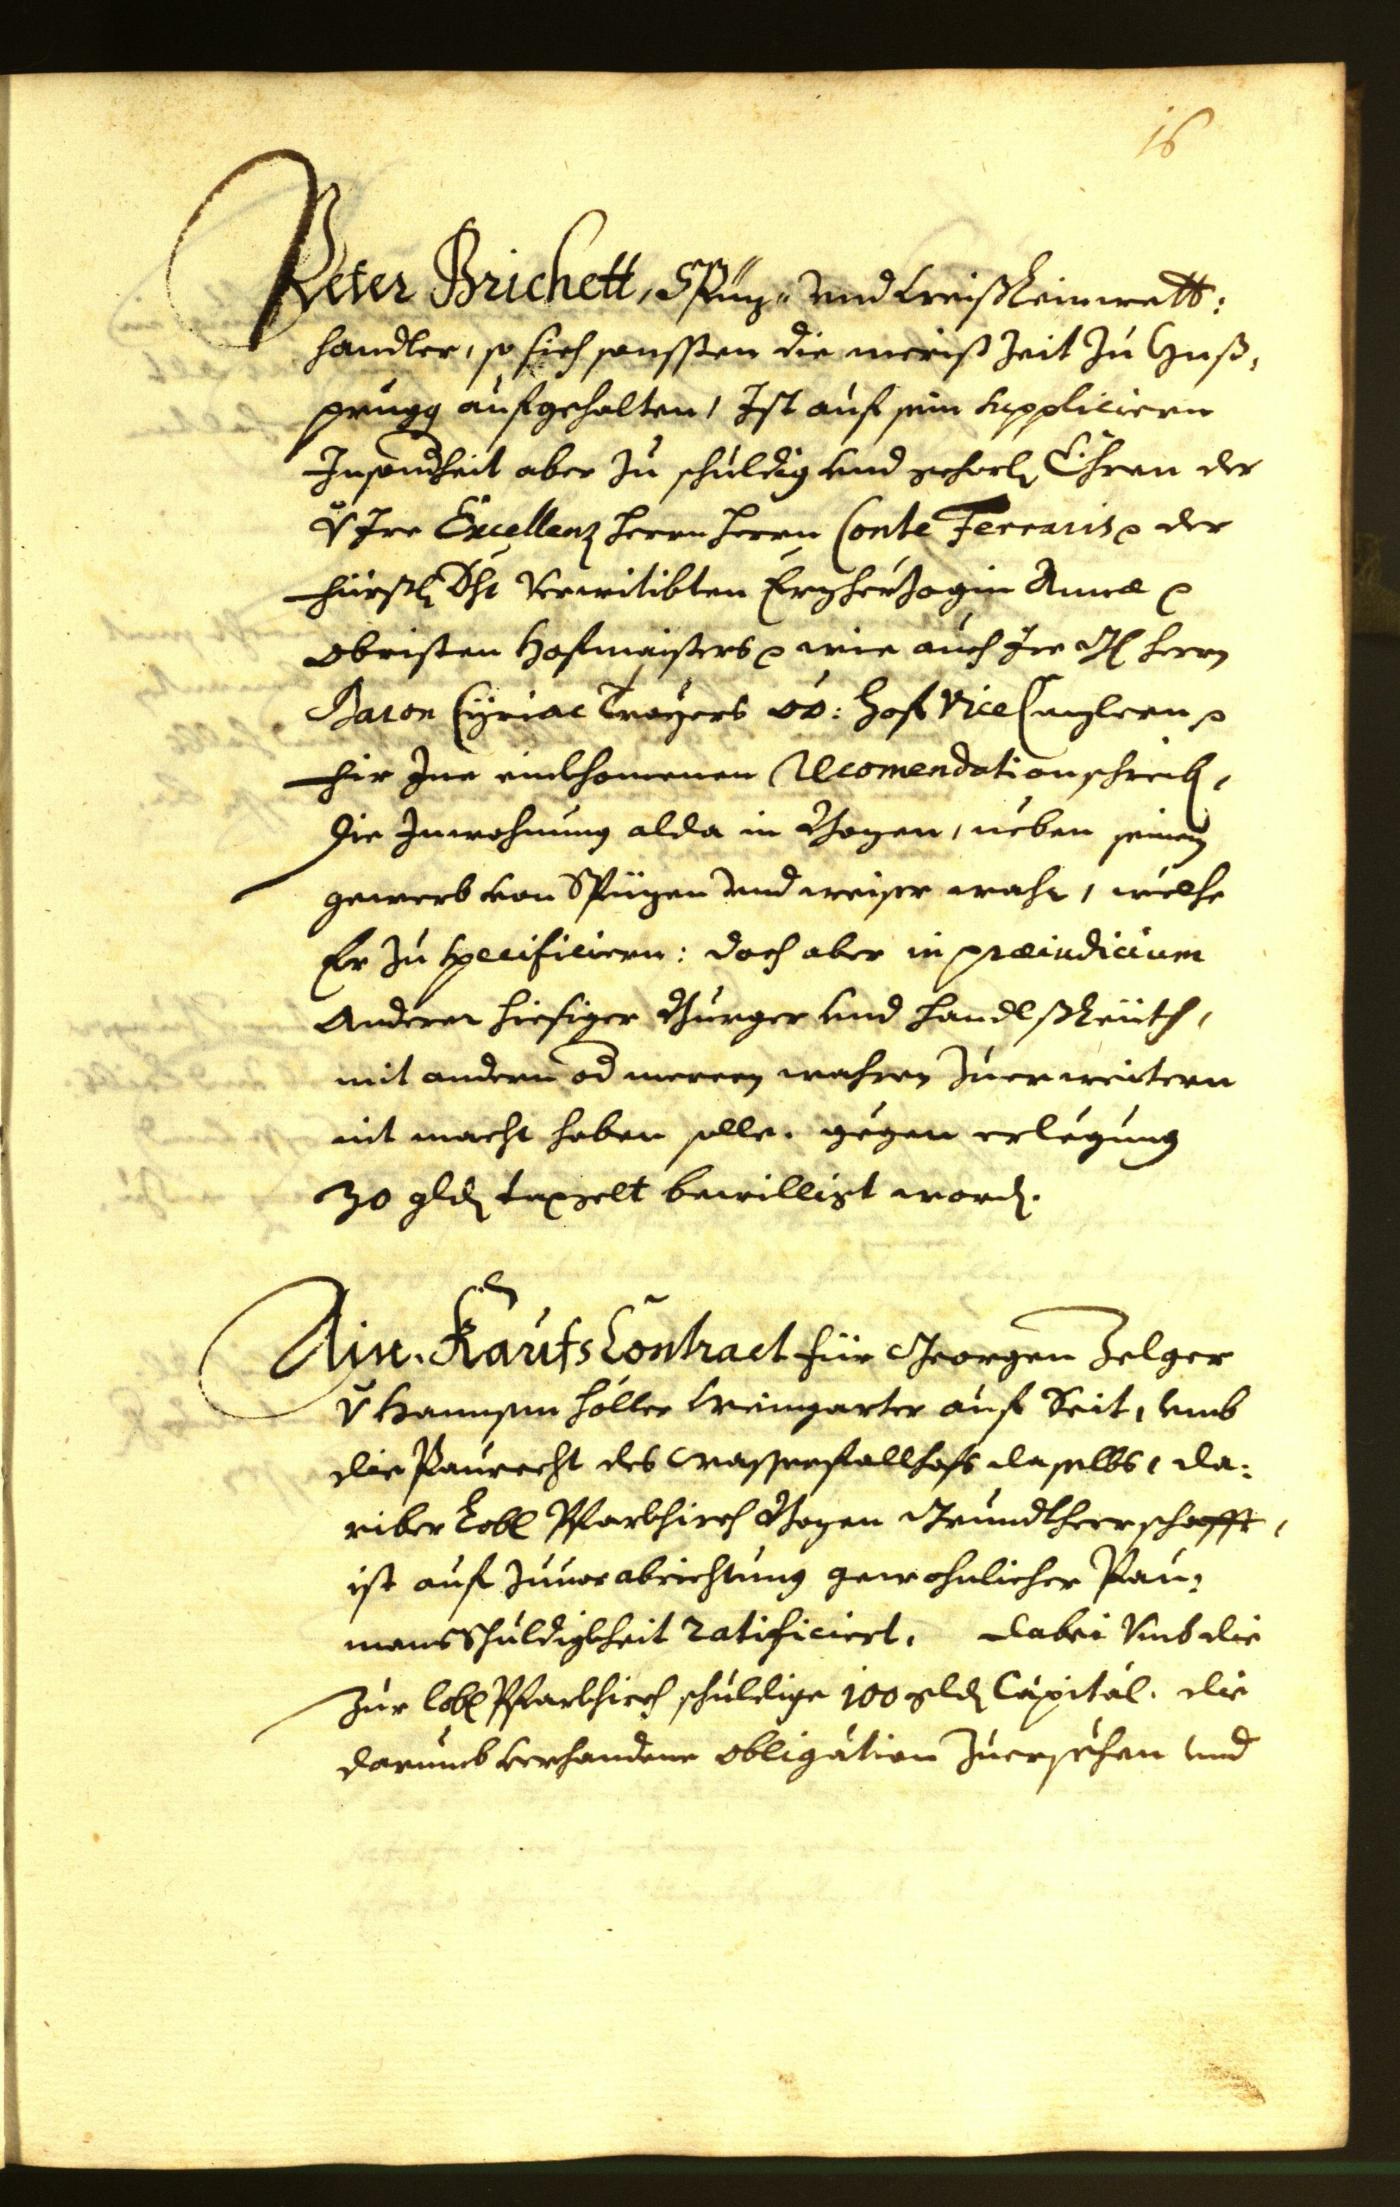 16
Peter Brichett, Spüz- und weißLeinwatt:
handler, so sich sonssten die meriste Zeit zu Ynß,
prugg aufgehalten, Ist auf sein suppliciern
Insondheit aber zu schuldig und gehors Ehren der
v Ire Excellenz herrn herrn Conte Ferraris der
fürstl Dht Verwitibten Erzherzogin Annæ
obristen Hofmaisters wie auch Ire herrn
Baron Cyriac Troyers oö: hof Vice Canzlern
fir Ine einkhomenen Recomendation schreib,
die Inwohnung alda in Bozen, neben seinem
gewerb von Spüzen und weiser wahr, welche
Er zu specificiern: doch aber in præiudicium
Anderer hiesiger Burger und handlsleüth,
mit andern od merern wahren zuerweitern
nit macht haben solle. gegen erlegung
30 gld taxgelt bewilligt word.
Ain. Kaufs Contract für Georgen Zelger
v Hannsen höller Weingarter auf Seit, umb
die Paurecht des Wasserfallhofs daselbs, da:
riber Lobl Pfarkhirch Bozen Grundtherrschafft,
ist auf zuuor abrichtung gewohnlicher Pau:
mansschuldigkheit ratificiert. dabei Umb die
zur lobl Pfarkhirch schuldige 100 gld Capital. die
darumb verhandene obligation zuersehen und